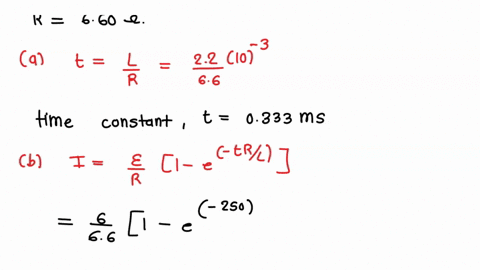 R = 6.60 Ω.
(a) t = L/R = 2.2/6.6 (10)^-3
time constant, t = 0.333 ms
(b) I = ε/R [1 - e^(-tR/L)]
= 6/6.6 [1 - e^(-250)